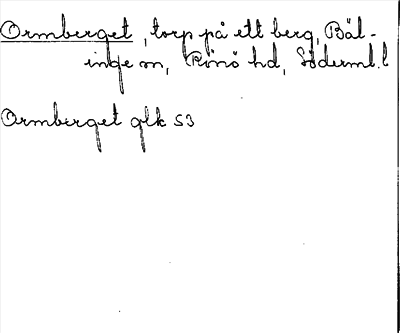 Ormberget, torp på ett berg, Bäl-
inge sn, Rönö hd, Söderml. l
Ormberget glk S3